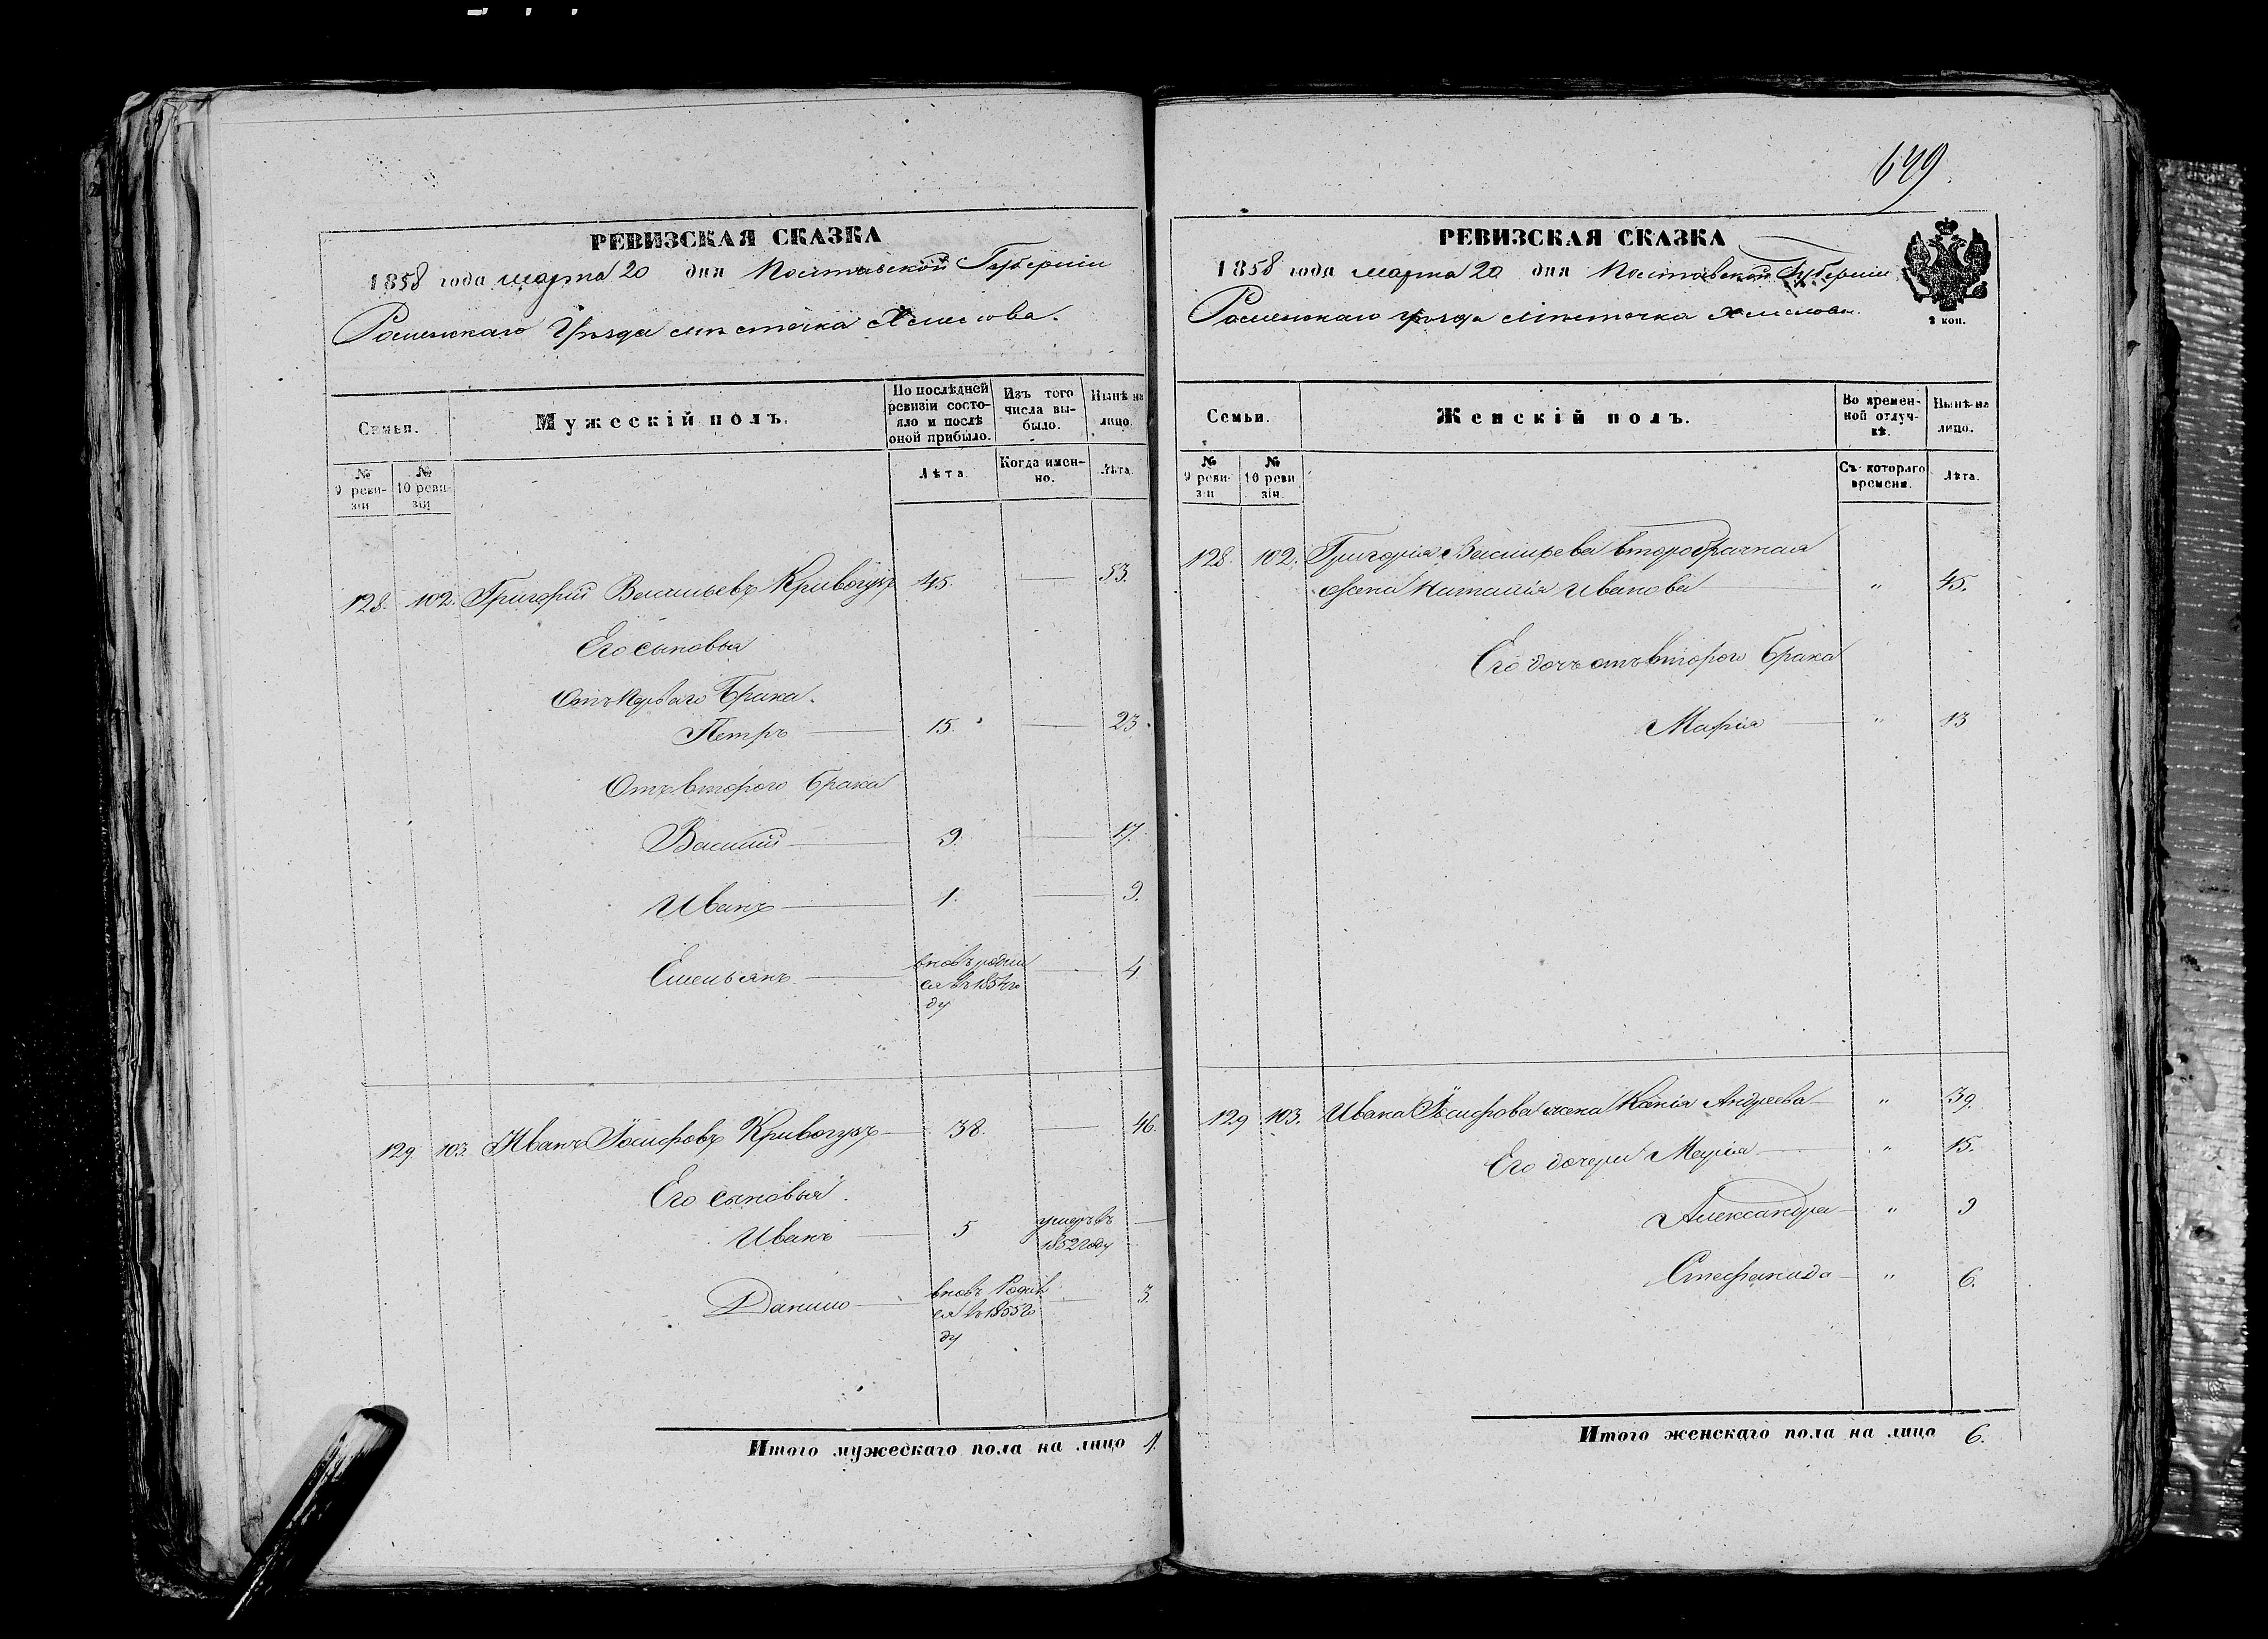 649
РЕВИЗСКАЯ СКАЗКА
1858 года марта 20 дня Полтавской Губерніи
Роменскаго Уѣзда мѣстечка Хмелова.
Семьи.
Мужескій полъ.
По послѣдней ревизіи состояло и послѣ оной прибыло.
Изъ того числа выбыло.
Нынѣ на лицо.
№ 9 ревизіи
№ 10 ревизіи
Лѣта.
Когда именно.
Лѣта.
128. 102. Григорій Васильевъ Кривогузъ 45. — 53.
Его сыновья
Отъ перваго брака.
Петръ — 15. — 23.
Отъ втораго брака
Василій — 9. — 17.
Иванъ — 1. — 9.
Емельянъ — вновь родил
ся въ 1854 го
ду — 4.
129. 103. Иванъ Іосифовъ Кривогузъ — 38. — 46.
Его сыновья.
Иванъ — 5 умеръ въ
1852 году —
Данило — вновь родил
ся въ 1855 го
ду — 3.
Итого мужескаго пола на лицо
РЕВИЗСКАЯ СКАЗКА
1858 года марта 20 дня Полтавской Губерніи
Роменскаго уѣзда мѣстечка Хмелова.
2 коп.
Семьи.
Женскій полъ.
Во временной отлучкѣ.
Нынѣ на лицо.
№ 9 ревизіи
№ 10 ревизіи
Съ котораго времени.
Лѣта.
128. 102. Григорія Васильева второбрачная
жена Наталія Иванова — " 45.
Его дочь отъ втораго брака
Марія — " 13
129 103. Ивана Іосифова жена Ксенія Андреева — " 39.
Его дочери Марія — " 15.
Александра — " 9
Стефанида — " 6.
Итого женскаго пола на лицо 6.